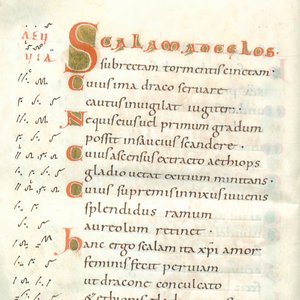 AEU
UIA
SCALAM AD CELOS.
subrectam tormentis cinctam.
Cuius ima draco servare
cautus invigilat iugiter.
Ne quis eius vel primum gradum
possit insaucius scandere.
Cuius ascensus extracto aethiops
gladio vetat exitium minitans.
Cuius supremis innixus iuvenis
splendidus ramum
aureolum retinet.
hanc ergo scalam ita xpi amor
feminis fecit perviam
ut dracone conculcato